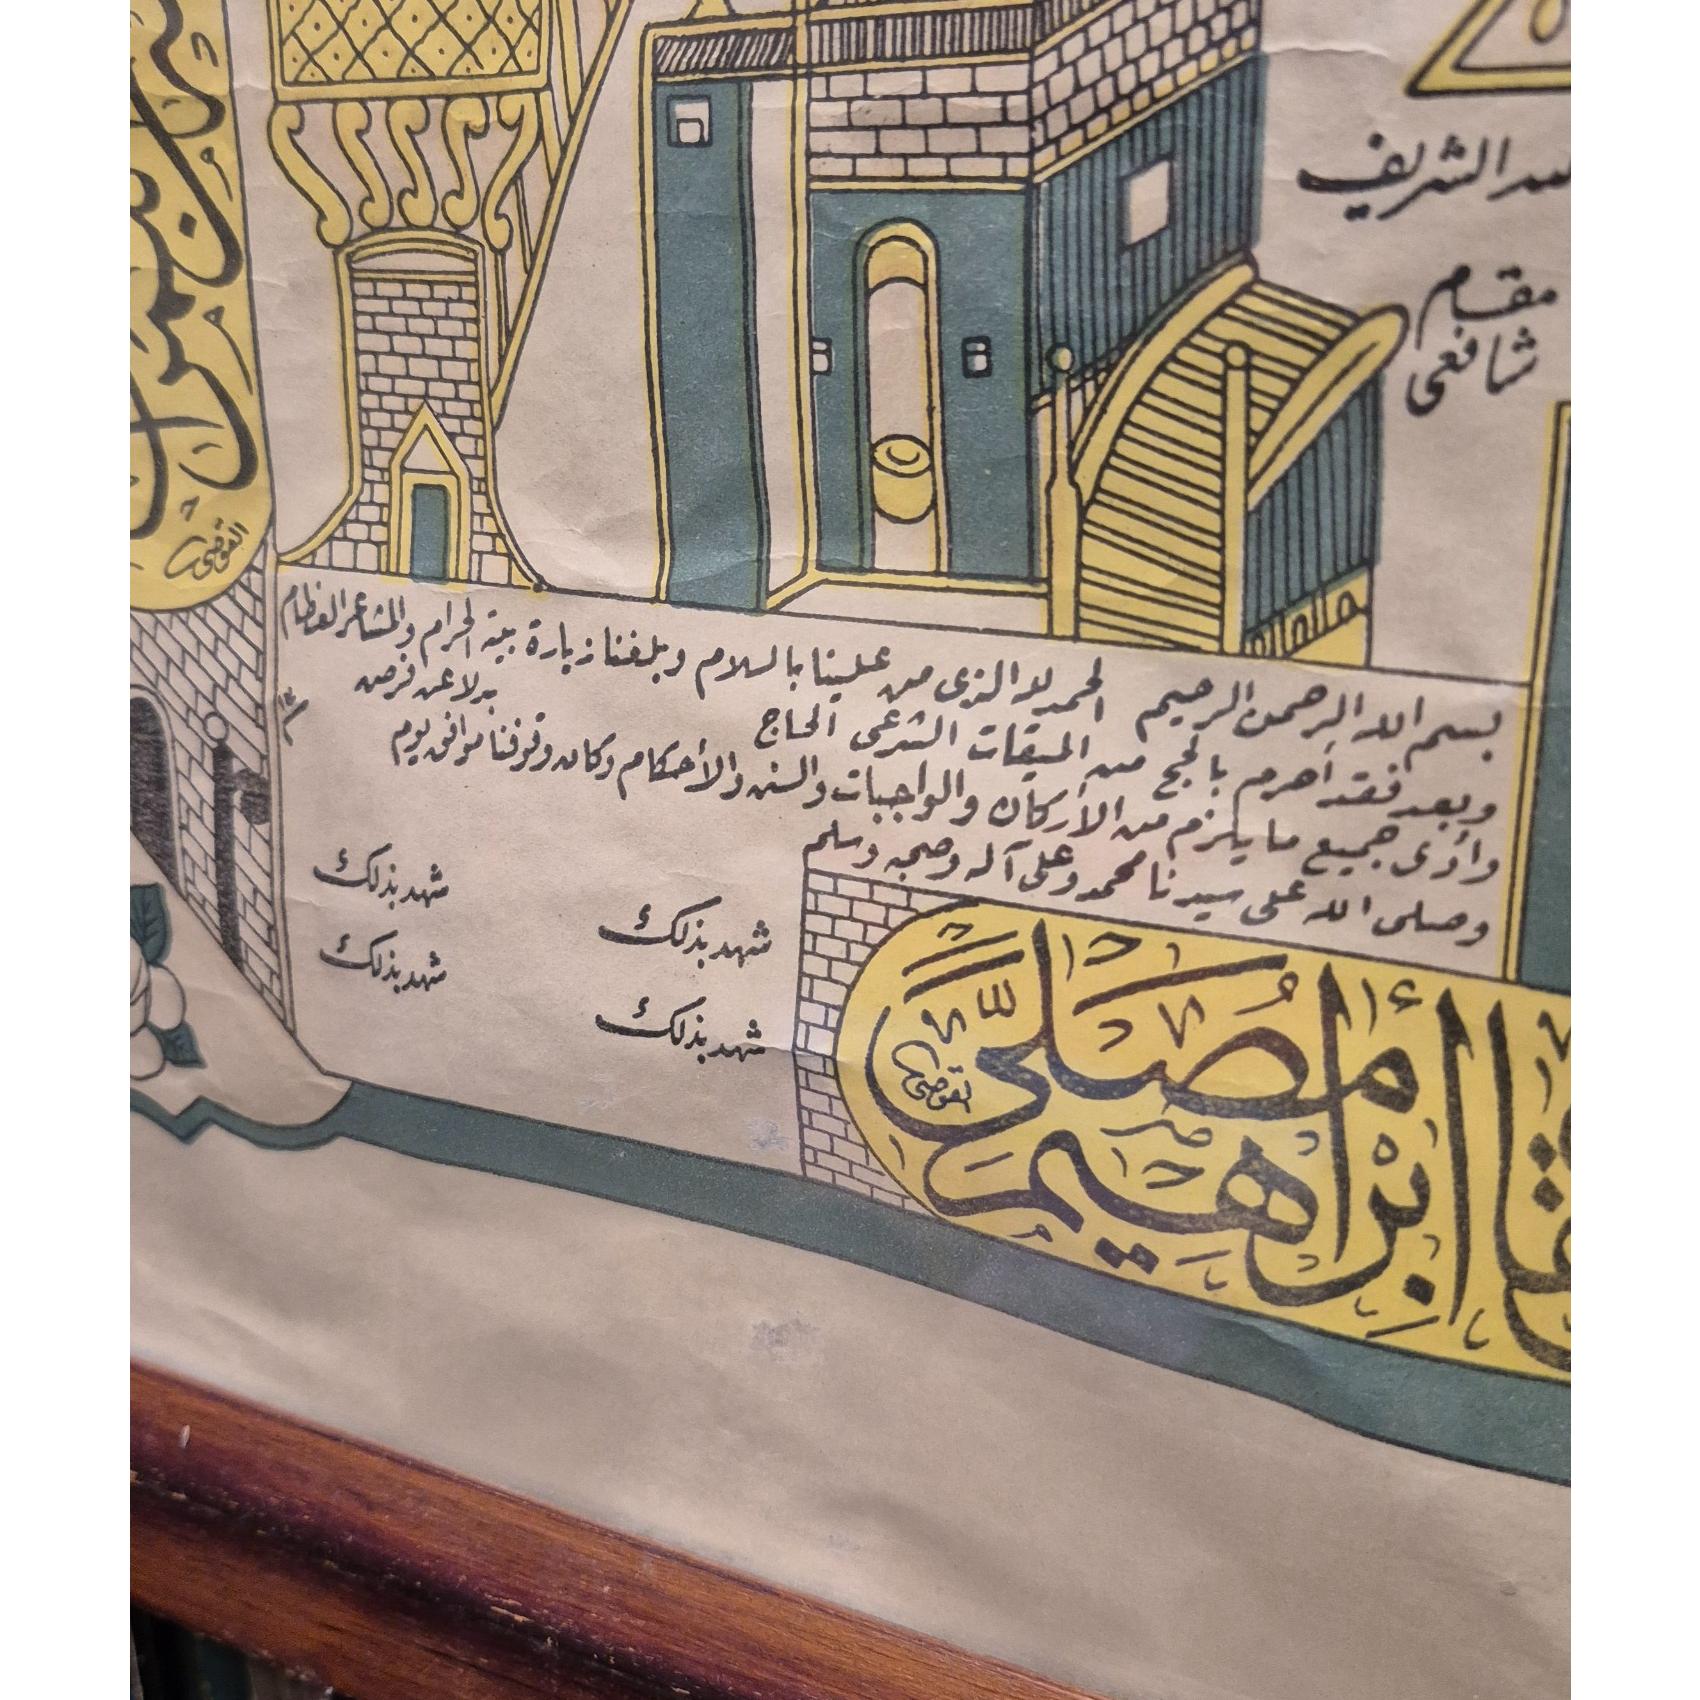 الشريف
مقام
شافعى
بسم الله الرحمن الرحيم الحمد لله الذى من علينا بالسلام وبلغنا زيارة بيته الحرام والمشاعر العظام
وبعد فقد أحرم بالحج من الميقات الشرعى الحاج بدلا عن فرض
وأدى جميع ما يلزم من الأركان والواجبات والسنن والأحكام وكان وقوفنا موافق يوم ١٣/
وصلى الله على سيدنا محمد وعلى آله وصحبه وسلم
شهد بذلك شهد بذلك
شهد بذلك شهد بذلك
إبراهيم مصلى